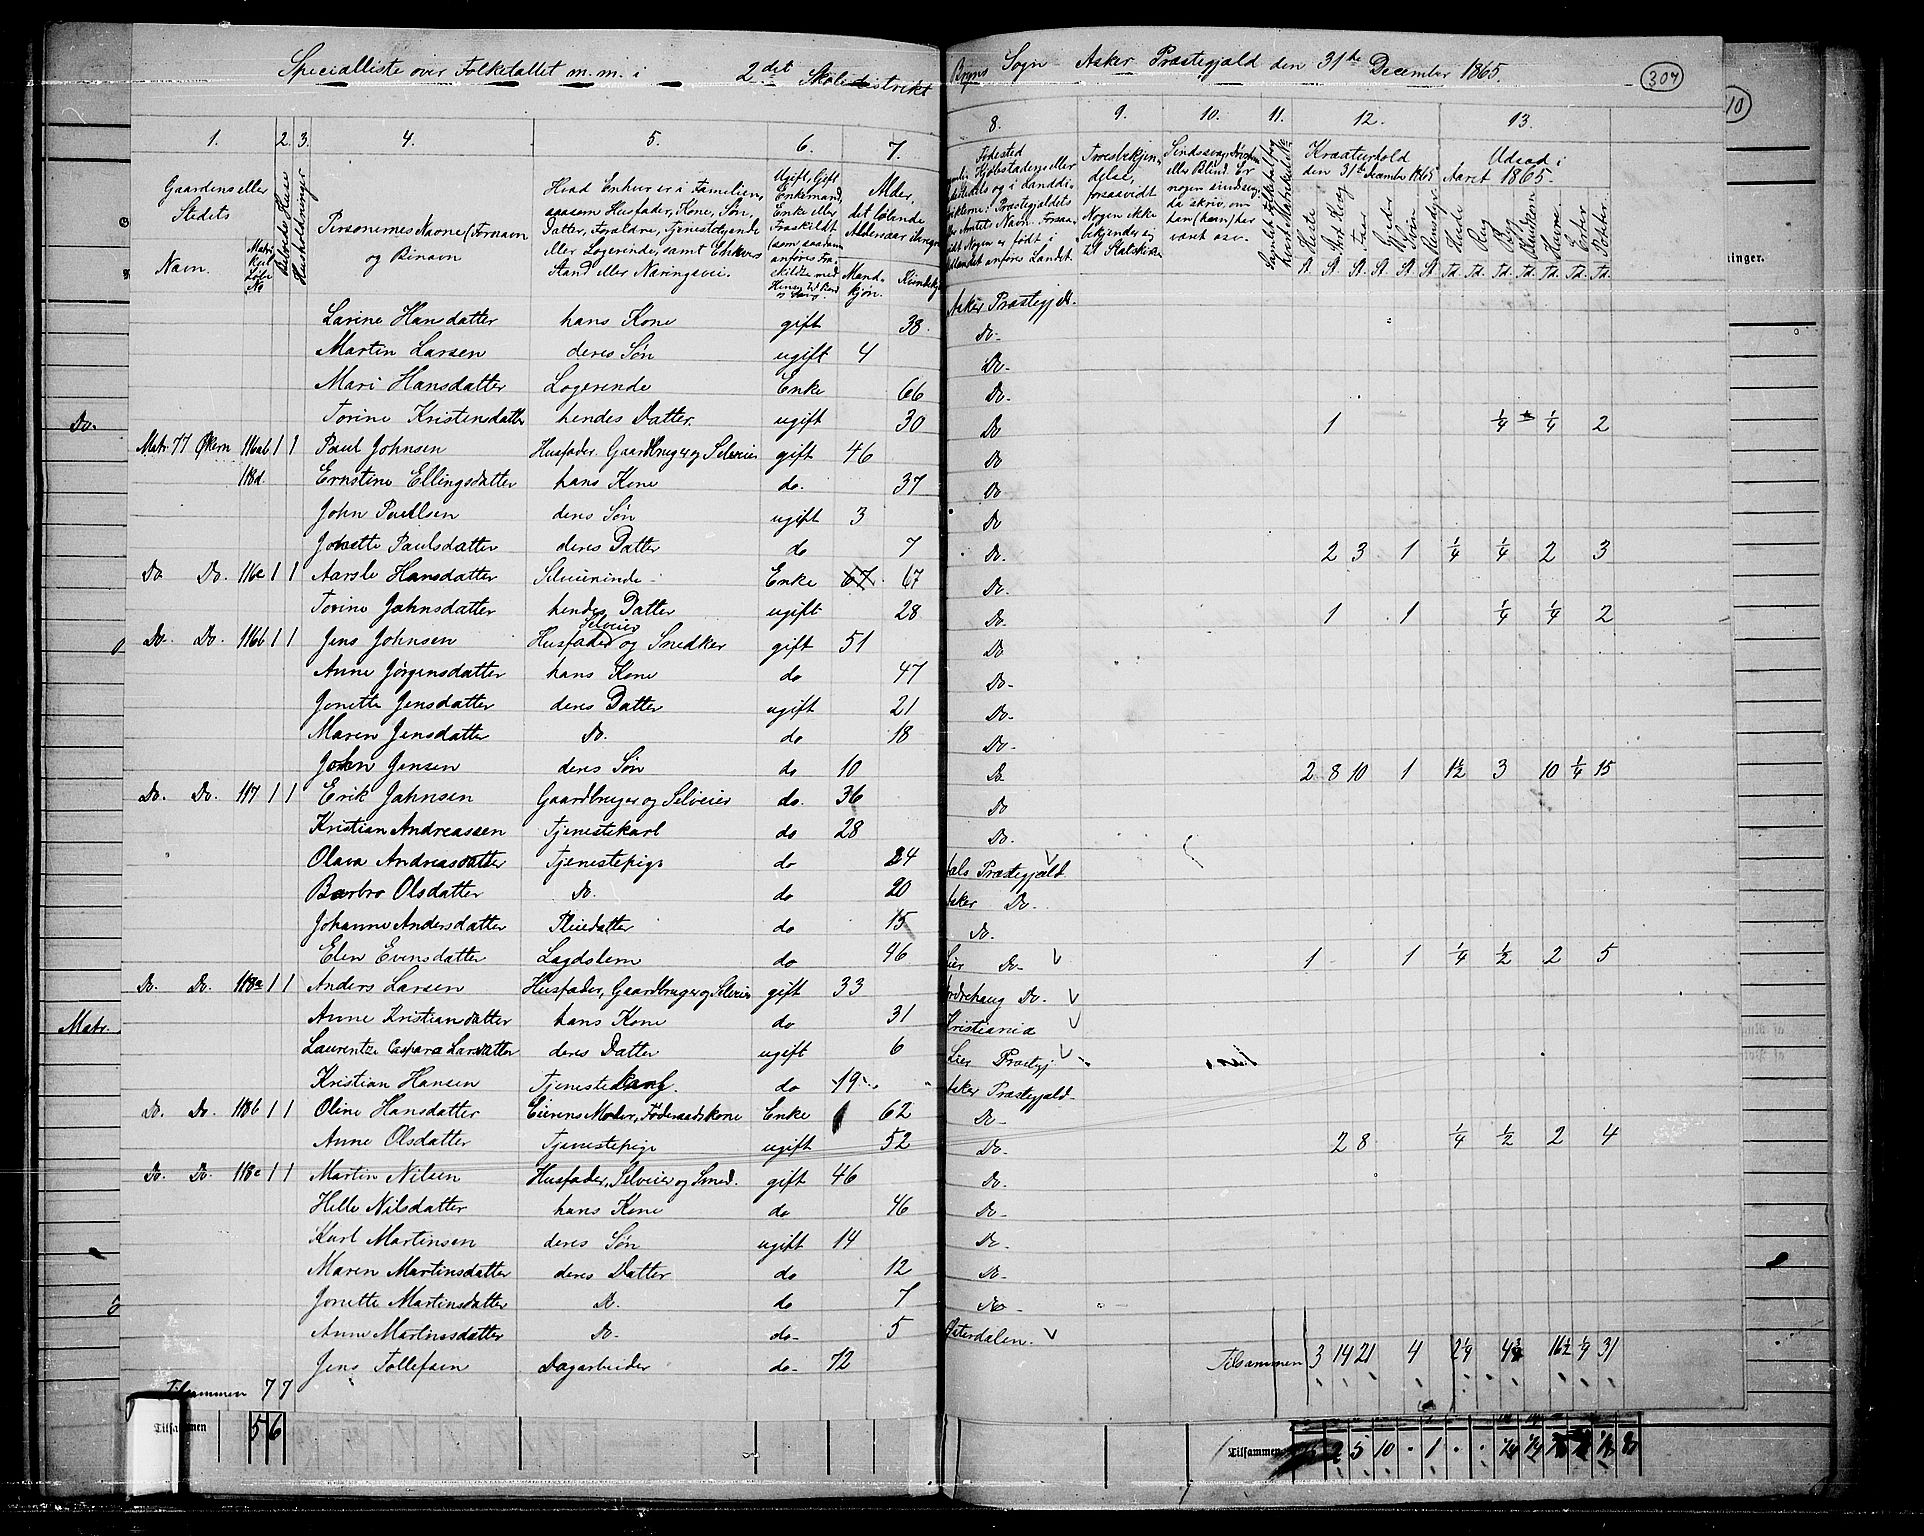 Specialliste over Folketallet m.m. i 2.det Skoledistrikt
Sogn Asker Præstegjæld den 31te December 1865.
307
10
1. 2. 3. 4. 5. 6. 7.
8. 9. 10. 11. 12. 13.
Gaardens eller Stedets Navn.
Beboede Huse
Husholdninger
Personernes Navne (Fornavn og Binavn
Hvad Enhver er i Familien, saasom Husfader, Kone, Søn, Datter, Forældre, Tjenestetyende eller Logerende, samt Enhvers Stand eller Næringsvei.
Ugift, Gift, Enkemand, Enke eller Fraskildt
Alder, det løbende Aldersaar
Mandkjøn.
Fødested
Troesbekjendelse, forsaavidt Nogen ikke bekjender sig til Statskirken
Kreaturhold den 31te December 1865
Udsæd i Aaret 1865.
Larine Hansdatter hans Kone gift 38. Asker Præstegjæld.
Martin Larsen deres Søn ugift 4 Do.
Mari Hansdatter Logerende Enke 66 Do.
Torine Kristensdatter hendes Datter ugift 30 Do.
Do.
Matr 77 Økern 116ab 1 1 Paul Johnsen Husfader, Gaardbruger og Selveier gift 46 Do 1 ¼ ¼ 2
118d. Ernstine Ellingsdatter hans Kone do. 37 Do
John Paulsen deres Søn ugift 3 Do
Jonette Paulsdatter deres Datter do 7 Do
Do Do. 116c 1 1 Aarsle Hansdatter Selveierinde Enke 67 Do. 2 3 1 ¼ ¼ 2 3
Torine Johnsdatter hendes Datter ugift 28 Do.
Do. Do. 116b 1 1 Jens Johnsen Husfader Selveier og Snedker gift 51 Do. 1 1 ¼ ¼ 2
Anne Jørgensdatter hans Kone do 47 Do
Jonette Jensdatter deres Datter ugift 21 Do.
Maren Jensdatter Do. do 18 Do.
John Jensen deres Søn do 10 Do.
Do. Do. 117 1 1 Erik Johnsen Gaardbruger og Selveier do. 36 Do 2 8 10 1 1½ 3 10 ¼ 15
Kristian Andreassen Tjenestekarl do 28 Do
Olava Andreasdatter Tjenestepige do 24 Do.
Barbro Olsdatter Do. do 20 Præstegjæld
Johanne Andersdatter Pleiedatter do 15 Asker Do.
Elen Evensdatter Lægdslem do 46 Do.
Do. Do. 118a 1 1 Anders Larsen Husfader, Gaardbruger og Selveier gift 33 Lier Do. 1 1 ¼ ½ 2 5
Anne Kristiansdatter hans Kone do 31 Norderhaug Do.
Laurentze Caspara Larsdatter deres Datter ugift 6 Kristiania
Kristian Hansen Tjenestekarl. do 19 Lier Præstegj
Do. Do. 118b 1 1 Oline Hansdatter Eierens Moder, Føderaadskone Enke 62 Asker Præstegjæld
Anne Olsdatter Tjenestepige ugift 52 Do.
Do. Do. 118c 1 1 Martin Nilsen Husfader, Selveier og Smed. gift 46 Do. 2 8 ¼ ½ 2 4
Helle Nilsdatter hans Kone do 46 Do.
Karl Martinsen deres Søn ugift 14 Do.
Maren Martinsdatter deres Datter do 12 Do.
Jonette Martinsdatter Do. do 7 Do.
Anne Martinsdatter Do. do 5 Do.
Jens Tollefsen Dagarbeider do 72 Østerdalen.
Matr.
Tilsammen 7 7
Tilsammen 3 14 21 4 2¼ 16½ ¼ 31
Tilsammen 5 6
Tilsammen
ninger.